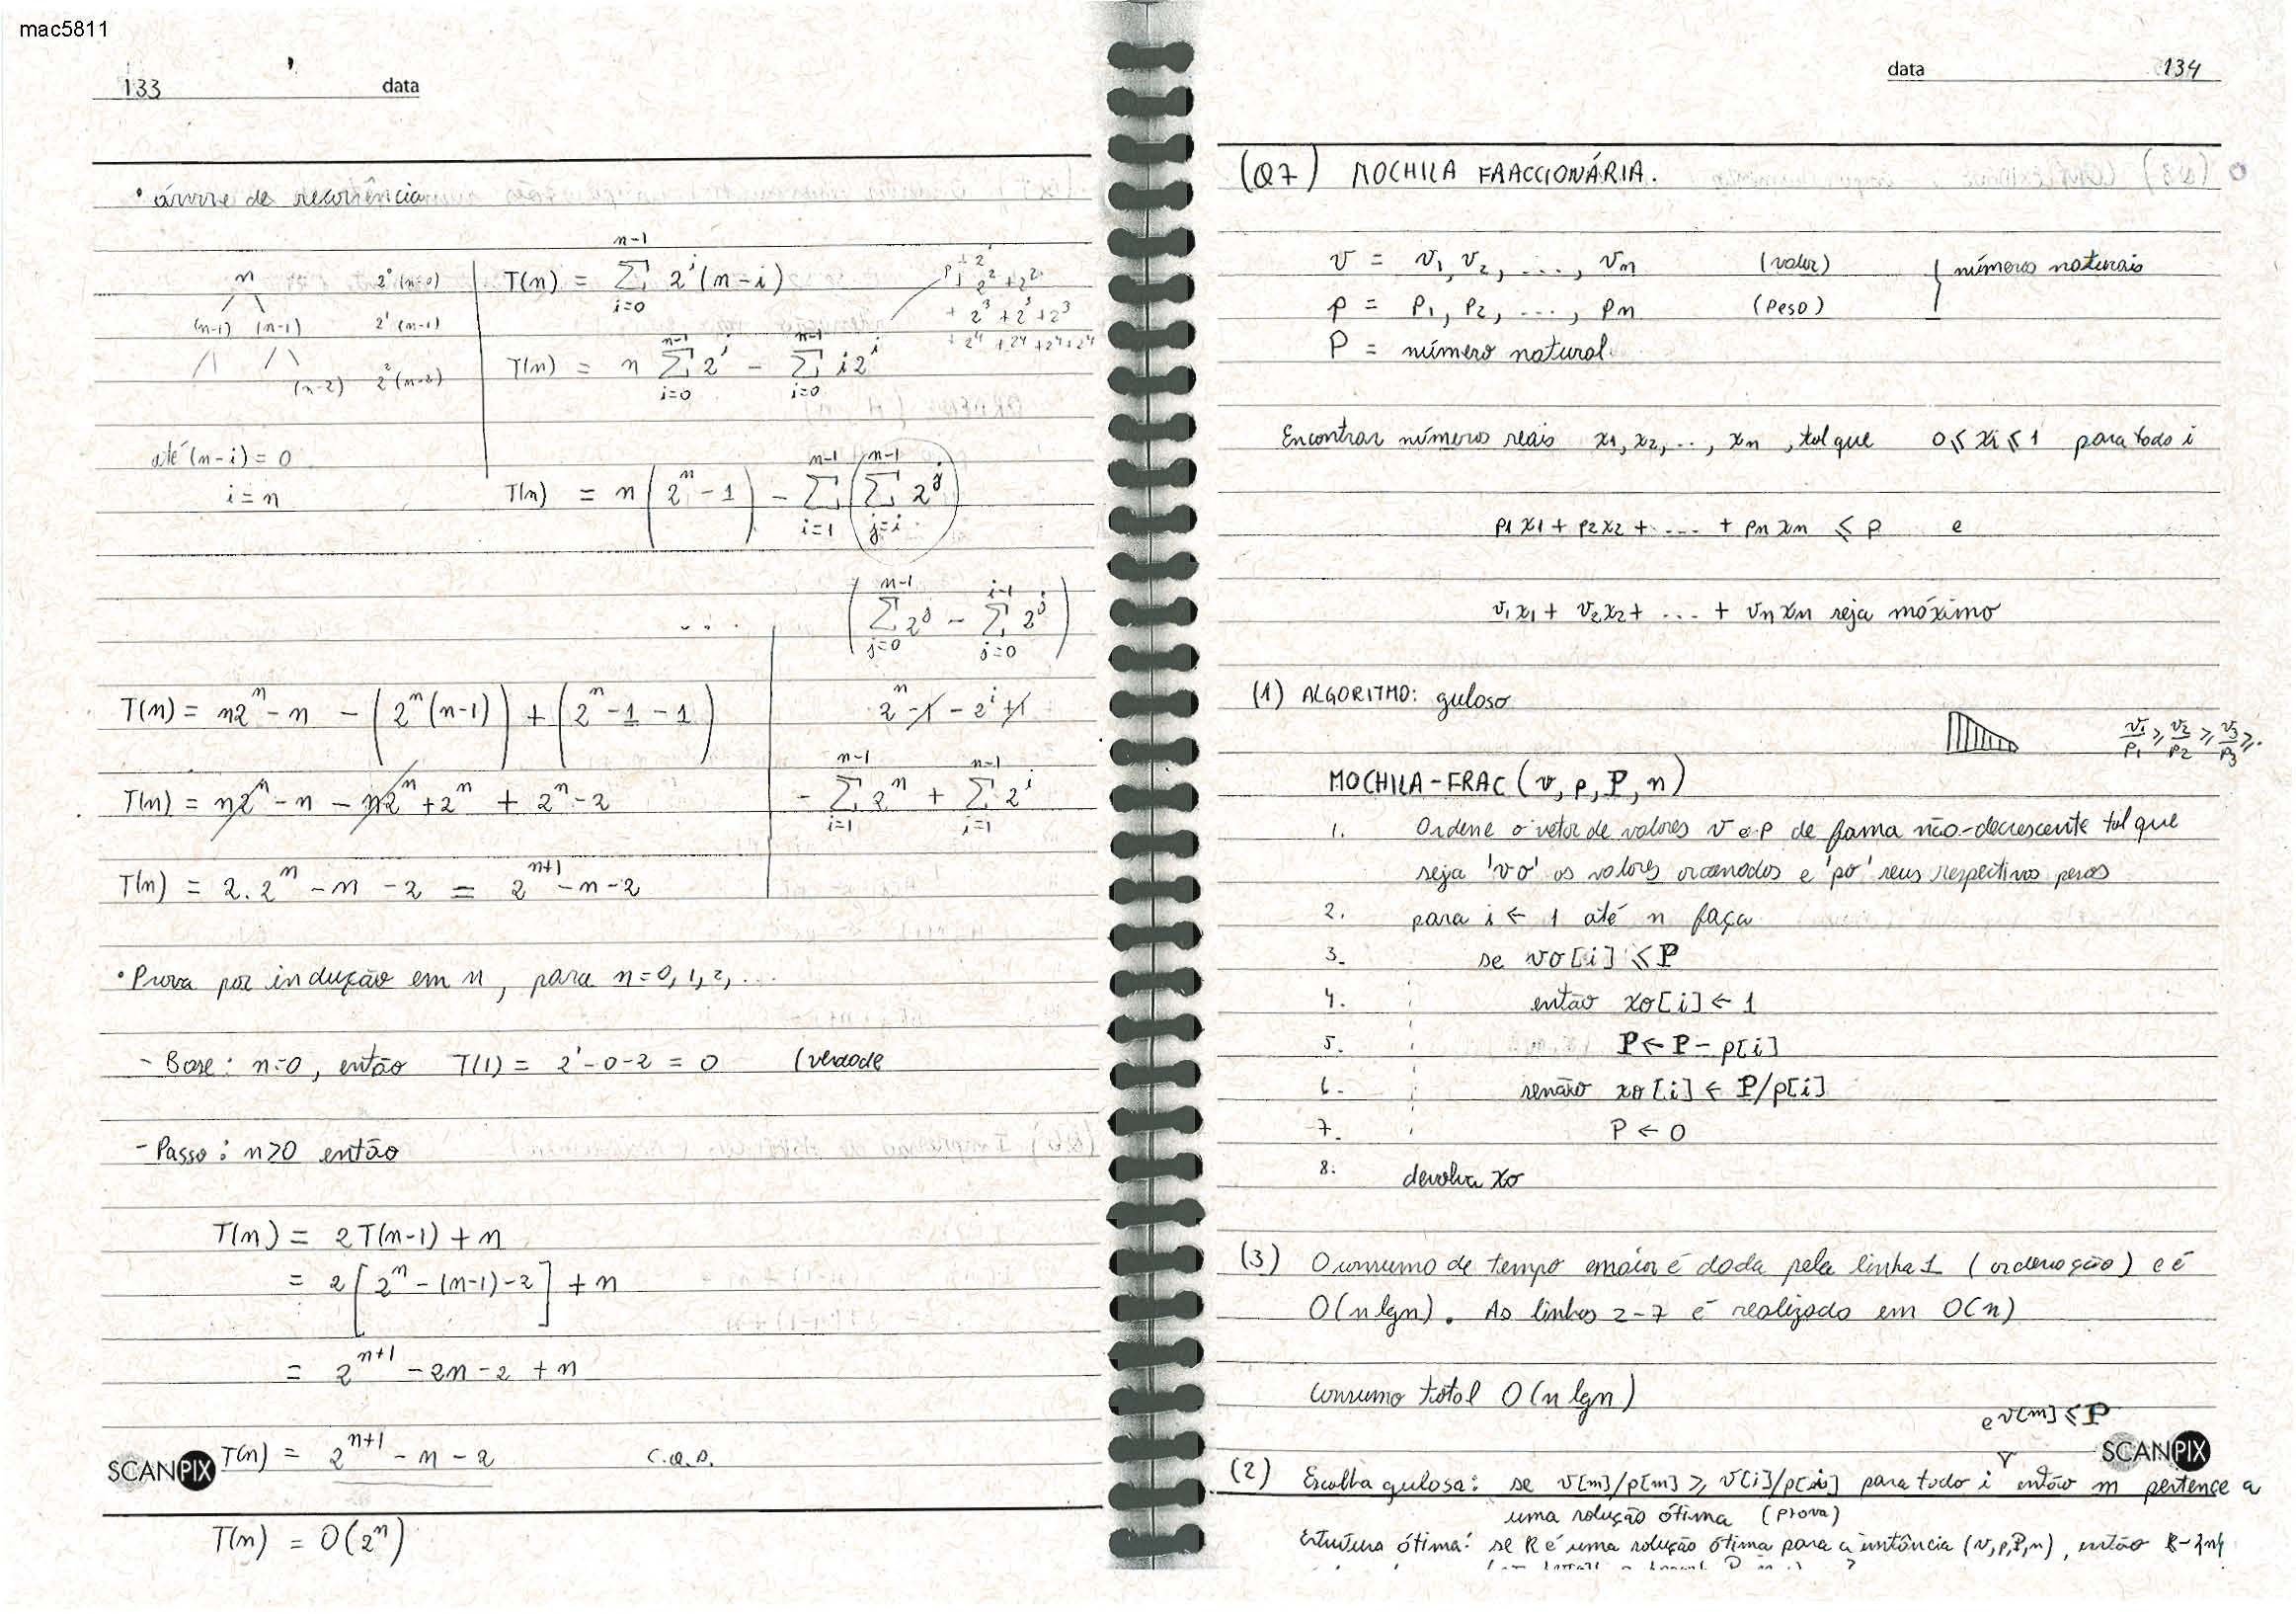 mac5811
133 data
• árvore de recorrência
n 2⁰(n-0)
(n-1) (n-1) 2¹(n-1)
(n-2) 2²(n-2)
até (n-i) = 0
i = n
T(n) = ∑_{i=0}^{n-1} 2^i (n-i)
2¹
+ 2² + 2²
+ 2³ + 2³ + 2³
+ 2⁴ + 2⁴ + 2⁴ + 2⁴
T(n) = n ∑_{i=0}^{n-1} 2^i - ∑_{i=0}^{n-1} i 2^i
T(n) = n (2^n - 1) - ∑_{i=1}^{n-1} (∑_{j=i}^{n-1} 2^j)
... (∑_{j=0}^{n-1} 2^j - ∑_{j=0}^{i-1} 2^j)
2^n - 1 - 2^i + 1
- ∑_{i=1}^{n-1} 2^n + ∑_{i=1}^{n-1} 2^i
T(n) = n2^n - n - (2^n (n-1)) + (2^n - 1 - 1)
T(n) = n2^n - n - n2^n + 2^n + 2^n - 2
T(n) = 2.2^n - n - 2 = 2^{n+1} - n - 2
• Prova por indução em n, para n=0, 1, 2, ...
- Base: n=0, então T(1) = 2¹ - 0 - 2 = 0 (verdade
- Passo: n>0 então
T(n) = 2T(n-1) + n
= 2[2^n - (n-1) - 2] + n
= 2^{n+1} - 2n - 2 + n
T(n) = 2^{n+1} - n - 2 C.Q.D.
SCANPIX
T(n) = O(2^n)
data 134
(Q7) MOCHILA FRACCIONÁRIA.
v = v1, v2, ..., vn (valor) } números naturais
p = p1, p2, ..., pn (peso)
P = número natural.
Encontrar números reais x1, x2, ..., xn, tal que 0 ≤ xi ≤ 1 para todo i
p1x1 + p2x2 + .... + pnxn ≤ P e
v1x1 + v2x2 + ... + vnxn seja máximo
(1) ALGORITMO: guloso
v1/p1 ≥ v2/p2 ≥ v3/p3 ≥.
MOCHILA-FRAC (v, p, P, n)
1. Ordene o vetor de valores v e p de forma não-decrescente tal que
seja 'vo' os valores ordenados e 'po' seus respectivos pesos
2. para i ← 1 até n faça
3. se vo[i] ≤ P
4. então xo[i] ← 1
5. P ← P - p[i]
6. senão xo[i] ← P/p[i]
7. P ← 0
8. devolva xo
(3) O consumo de tempo é dada pela linha 1 (ordenação) e é
O(n lgn). As linhas 2-7 é realizado em O(n)
Consumo total O(n lgn)
e v[m] ≤ P
SCANPIX
(2) Escolha gulosa: se v[m]/p[m] ≥ v[i]/p[i] para todo i então m pertence a
uma solução ótima (prova)
Estrutura ótima: se R é uma solução ótima para a instância (v,p,P,n), então R-{m}